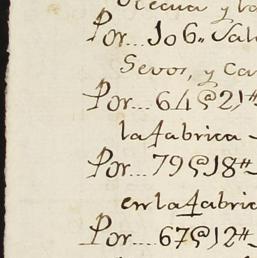 y la
Por... 106,, Sal
Sevos, y Ca
Por... 64@21#
la fabrica -
Por... 79@18#
en la fabric
Por... 67@12#